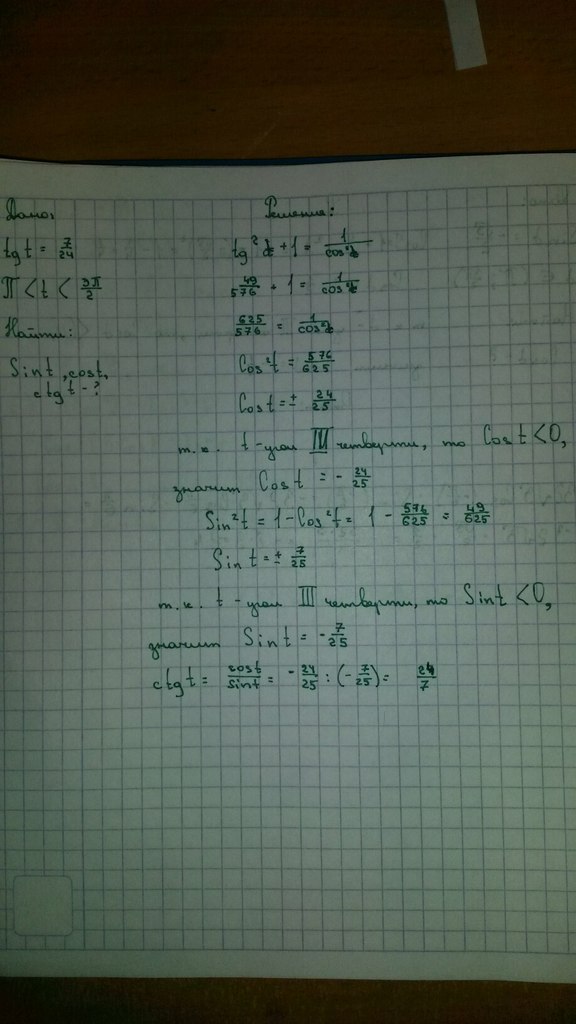 Дано:
tg t = 7/24
π < t < 3π/2
Найти:
Sin t, cos t,
ctg t - ?
Решение:
tg² t + 1 = 1/cos² t
49/576 + 1 = 1/cos² t
625/576 = 1/cos² t
Cos² t = 576/625
Cos t = ± 24/25
т.к. t - угол III четверти, то Cos t < 0,
значит Cos t = - 24/25
Sin² t = 1 - Cos² t = 1 - 576/625 = 49/625
Sin t = ± 7/25
т.к. t - угол III четверти, то Sin t < 0,
значит Sin t = - 7/25
ctg t = cos t/sin t = - 24/25 : (- 7/25) = 24/7